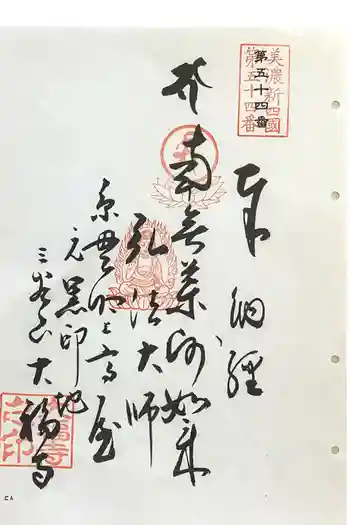 美濃新四國
第五十四番
第五十四番
奉納經
南無薬師如来
弘法大師
元黒印地
三峯山大福寺
大福寺